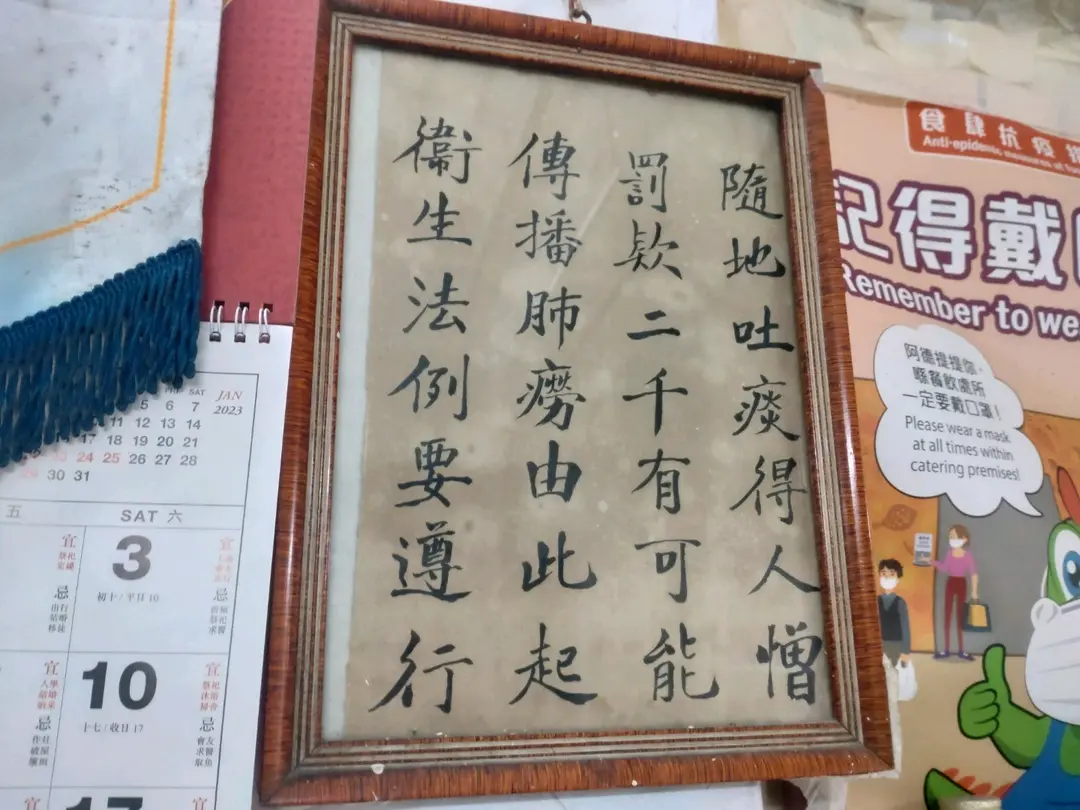 隨地吐痰得人憎
罰欵二千有可能
傳播肺癆由此起
衞生法例要遵行
食肆抗疫
Anti-epidemic measures of
記得戴
Remember to we
阿德提提你，
喺餐飲處所
一定要戴口罩！
Please wear a mask
at all times within
catering premises!
JAN
2023
SAT
5 6 7
11 12 13 14
17 18 19 20 21
23 24 25 26 27 28
29 30 31
五 SAT 六
宜 3 宜
忌 初十/平日10 忌
宜 10 宜
忌 十七/收日17 忌
宜 17 宜